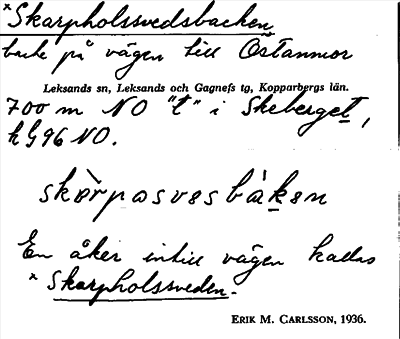 *Skarpholssvedsbacken,
backe på vägen till Östanmor
Leksands sn, Leksands och Gagnefs tg, Kopparbergs län.
700 m NO "t" i Skeberget,
hG96 NO.
En åker intill vägen kallas
*Skarpholssveden.
ERIK M. CARLSSON, 1936.